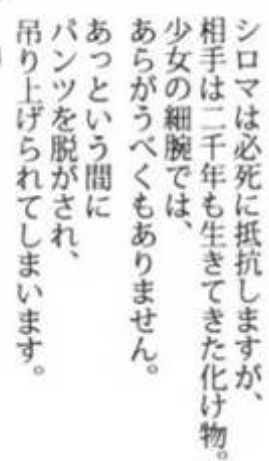 シロマは必死に抵抗しますが、
相手は二千年も生きてきた化け物。
少女の細腕では、
あらがうべくもありません。
あっという間に
パンツを脱がされ、
吊り上げられてしまいます。